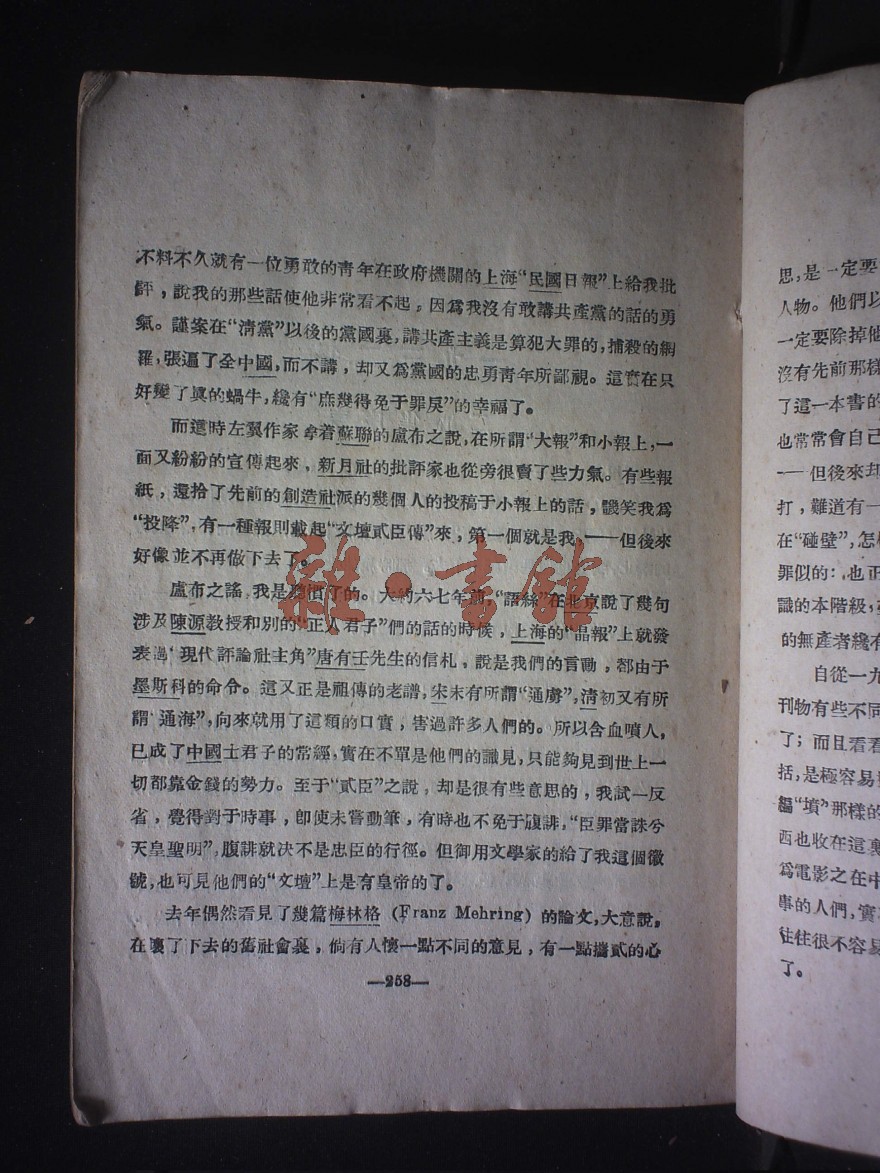 不料不久就有一位勇敢的青年在政府機關的上海“民國日報”上給我批
評，說我的那些話使他非常看不起，因爲我沒有敢講共產黨的話的勇
氣。謹案在“清黨”以後的黨國裏，講共產主義是算犯大罪的，捕殺的網
羅，張遍了全中國，而不講，却又爲黨國的忠勇青年所鄙視。這實在只
好變了眞的蝸牛，纔有“庶幾得免于罪戾”的幸福了。
而這時左翼作家拿着蘇聯的盧布之說，在所謂“大報”和小報上，一
面又紛紛的宣傳起來，新月社的批評家也從旁很賣了些力氣。有些報
紙，還拾了先前的創造社派的幾個人的投稿于小報上的話，譏笑我爲
“投降”，有一種報則載起“文壇貳臣傳”來，第一個就是我，——但後來
好像並不再做下去了。
盧布之謠，我是聽慣了的。大約六七年前，“語絲”在北京說了幾句
涉及陳源敎授和別的“正人君子”們的話的時候，上海的“晶報”上就發
表過“現代評論社主角”唐有壬先生的信札，說是我們的言動，都由于
墨斯科的命令。這又正是祖傳的老譜，宋末有所謂“通虜”，清初又有所
謂“通海”，向來就用了這類的口實，害過許多人們的。所以含血噴人，
已成了中國士君子的常經，實在不單是他們的識見，只能夠見到世上一
切都靠金錢的勢力。至于“貳臣”之說，却是很有些意思的，我試一反
省，覺得對于時事，卽使未嘗動筆，有時也不免于腹誹，“臣罪當誅兮
天皇聖明”，腹誹就决不是忠臣的行徑。但御用文學家的給了我這個徽
號，也可見他們的“文壇”上是有皇帝的了。
去年偶然看見了幾篇梅林格 (Franz Mehring) 的論文，大意說，
在壞了下去的舊社會裏，倘有人懷一點不同的意見，有一點攜貳的心
—258—
思，是一定要
人物。他們以
一定要除掉他
沒有先前那樣
了這一本書的
也常常會自己
——但後來却
打，難道有一
在“碰壁”，怎
罪似的：也正
識的本階級，
的無產者纔有
自從一九
刊物有些不同
了；而且看看
括，是極容易
編“墳”那樣的
西也收在這裏
爲電影之在中
事的人們，實
往往很不容易
了。
雜·書館